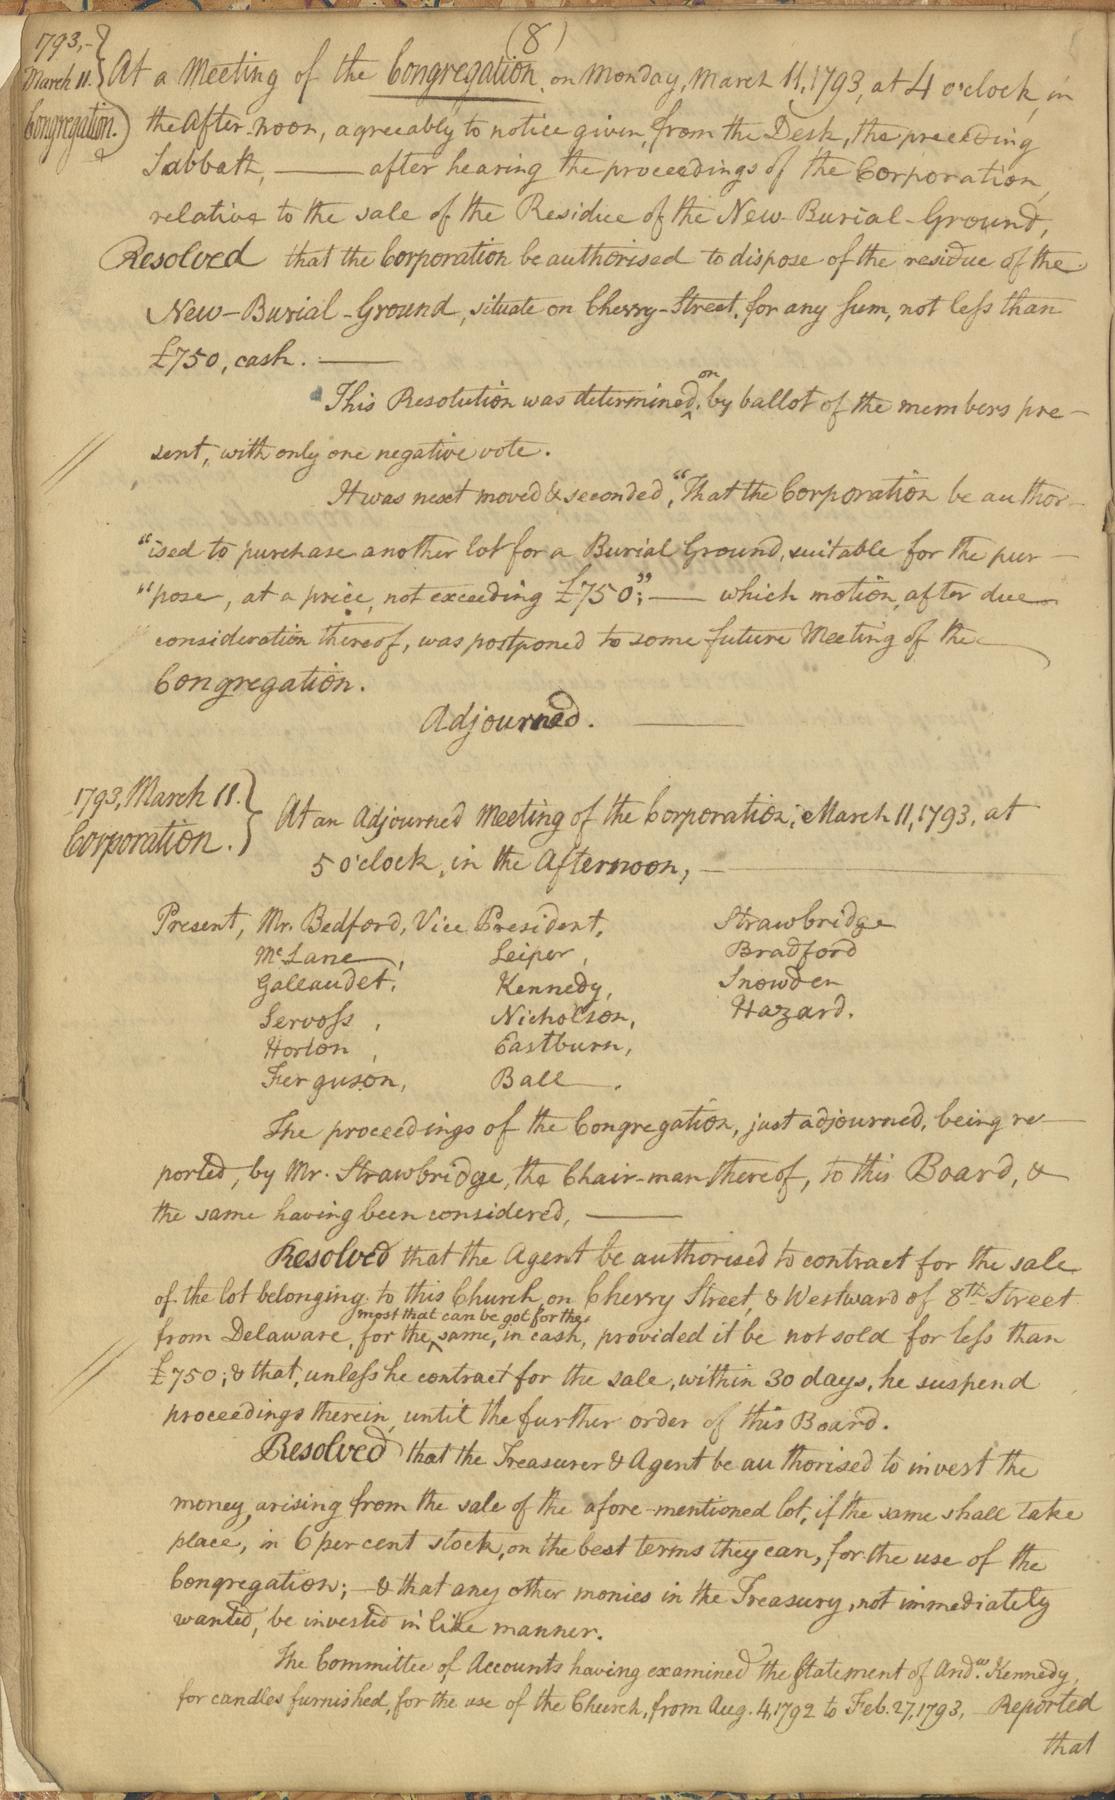 (8)
1793,-
March 11.
Congregation.
At a Meeting of the Congregation, on Monday, March 11, 1793, at 4 o'clock, in
the After-noon, agreeably to notice given, from the Desk, the preceeding
Sabbath, —— after hearing the proceedings of the Corporation,
relative to the sale of the Residue of the New-Burial-Ground,
Resolved that the Corporation be authorised to dispose of the residue of the
New-Burial-Ground, situate on Cherry-Street, for any sum, not less than
£750, cash. ——
This Resolution was determined, on by ballot of the members pre-
sent, with only one negative vote.
It was next moved & seconded, "That the Corporation be author-
"ised to purchase another lot for a Burial Ground, suitable for the pur-
"pose, at a price, not exceeding £750"; —— which motion, after due
consideration thereof, was postponed to some future Meeting of the
Congregation.
Adjourned. ——
1793, March 11.
Corporation.
At an Adjourned Meeting of the Corporation, March 11, 1793, at
5 o'clock, in the Afternoon, —
Present, Mr. Bedford, Vice President, Strawbridge
McLane, Leiper, Bradford
Gallaudet, Kennedy, Snowden
Servoss, Nicholson, Hazard.
Horton, Eastburn,
Ferguson, Ball.
The proceedings of the Congregation, just adjourned, being re-
ported, by Mr. Strawbridge, the Chair-man thereof, to this Board, &
the same having been considered, ——
Resolved that the Agent be authorised to contract for the sale
of the lot belonging to this Church, on Cherry Street, & Westward of 8th Street
from Delaware, for the most that can be got for the same, in cash, provided it be not sold for less than
£750; & that, unless he contract for the sale, within 30 days, he suspend
proceedings therein, until the further order of this Board.
Resolved that the Treasurer & Agent be authorised to invest the
money, arising from the sale of the afore-mentioned lot, if the same shall take
place, in 6 per cent stock, on the best terms they can, for the use of the
Congregation; —& that any other monies in the Treasury, not immediately
wanted, be invested in like manner.
The Committee of Accounts having examined the Statement of Andw. Kennedy,
for candles furnished, for the use of the Church, from Aug. 4, 1792 to Feb. 27, 1793, Reported
that